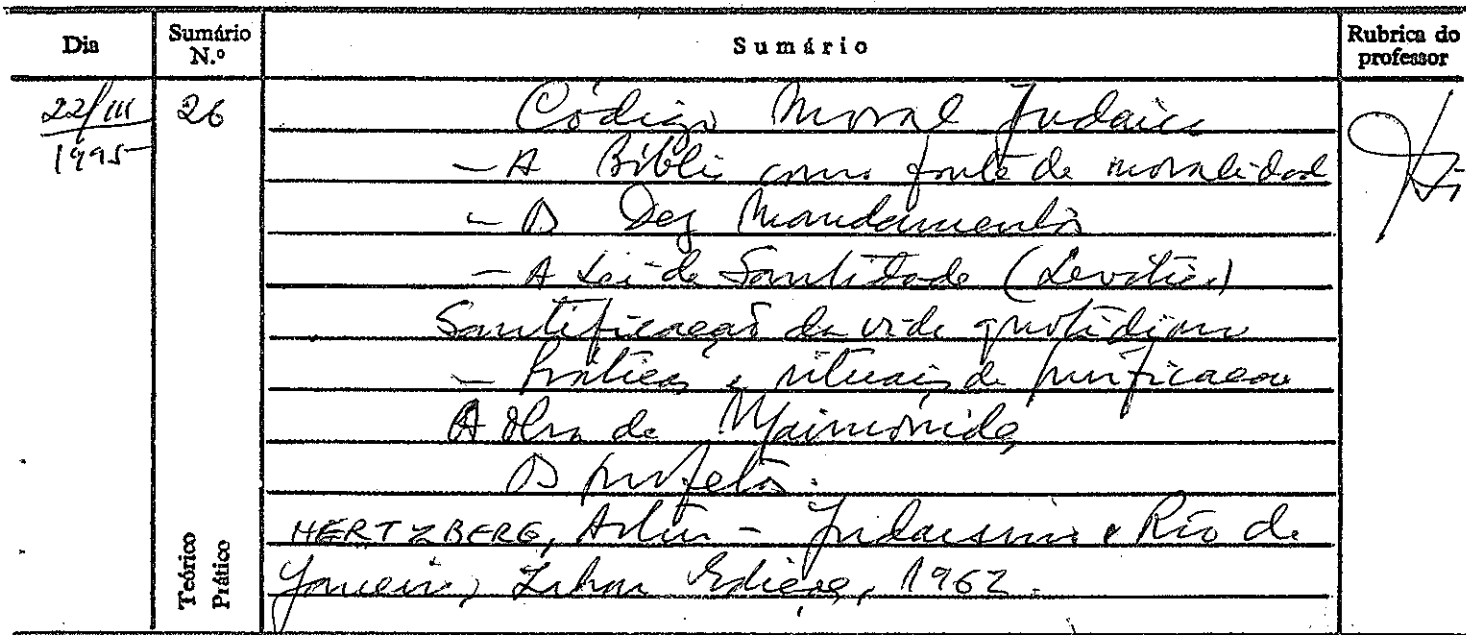 Dia
Sumário N.º
Sumário
Rubrica do professor
22/III 1995
26
Código Moral Judaico
— A Bíblia como fonte de moralidade
— Os Dez Mandamentos
— A Lei de Santidade (Levítico)
Santificação da vida quotidiana
— Práticas e rituais de purificação
A obra de Maimónides
Os profetas.
HERTZBERG, Artur – Judaísmo, Rio de
Janeiro, Zahar Edições, 1962.
Teórico
Prático